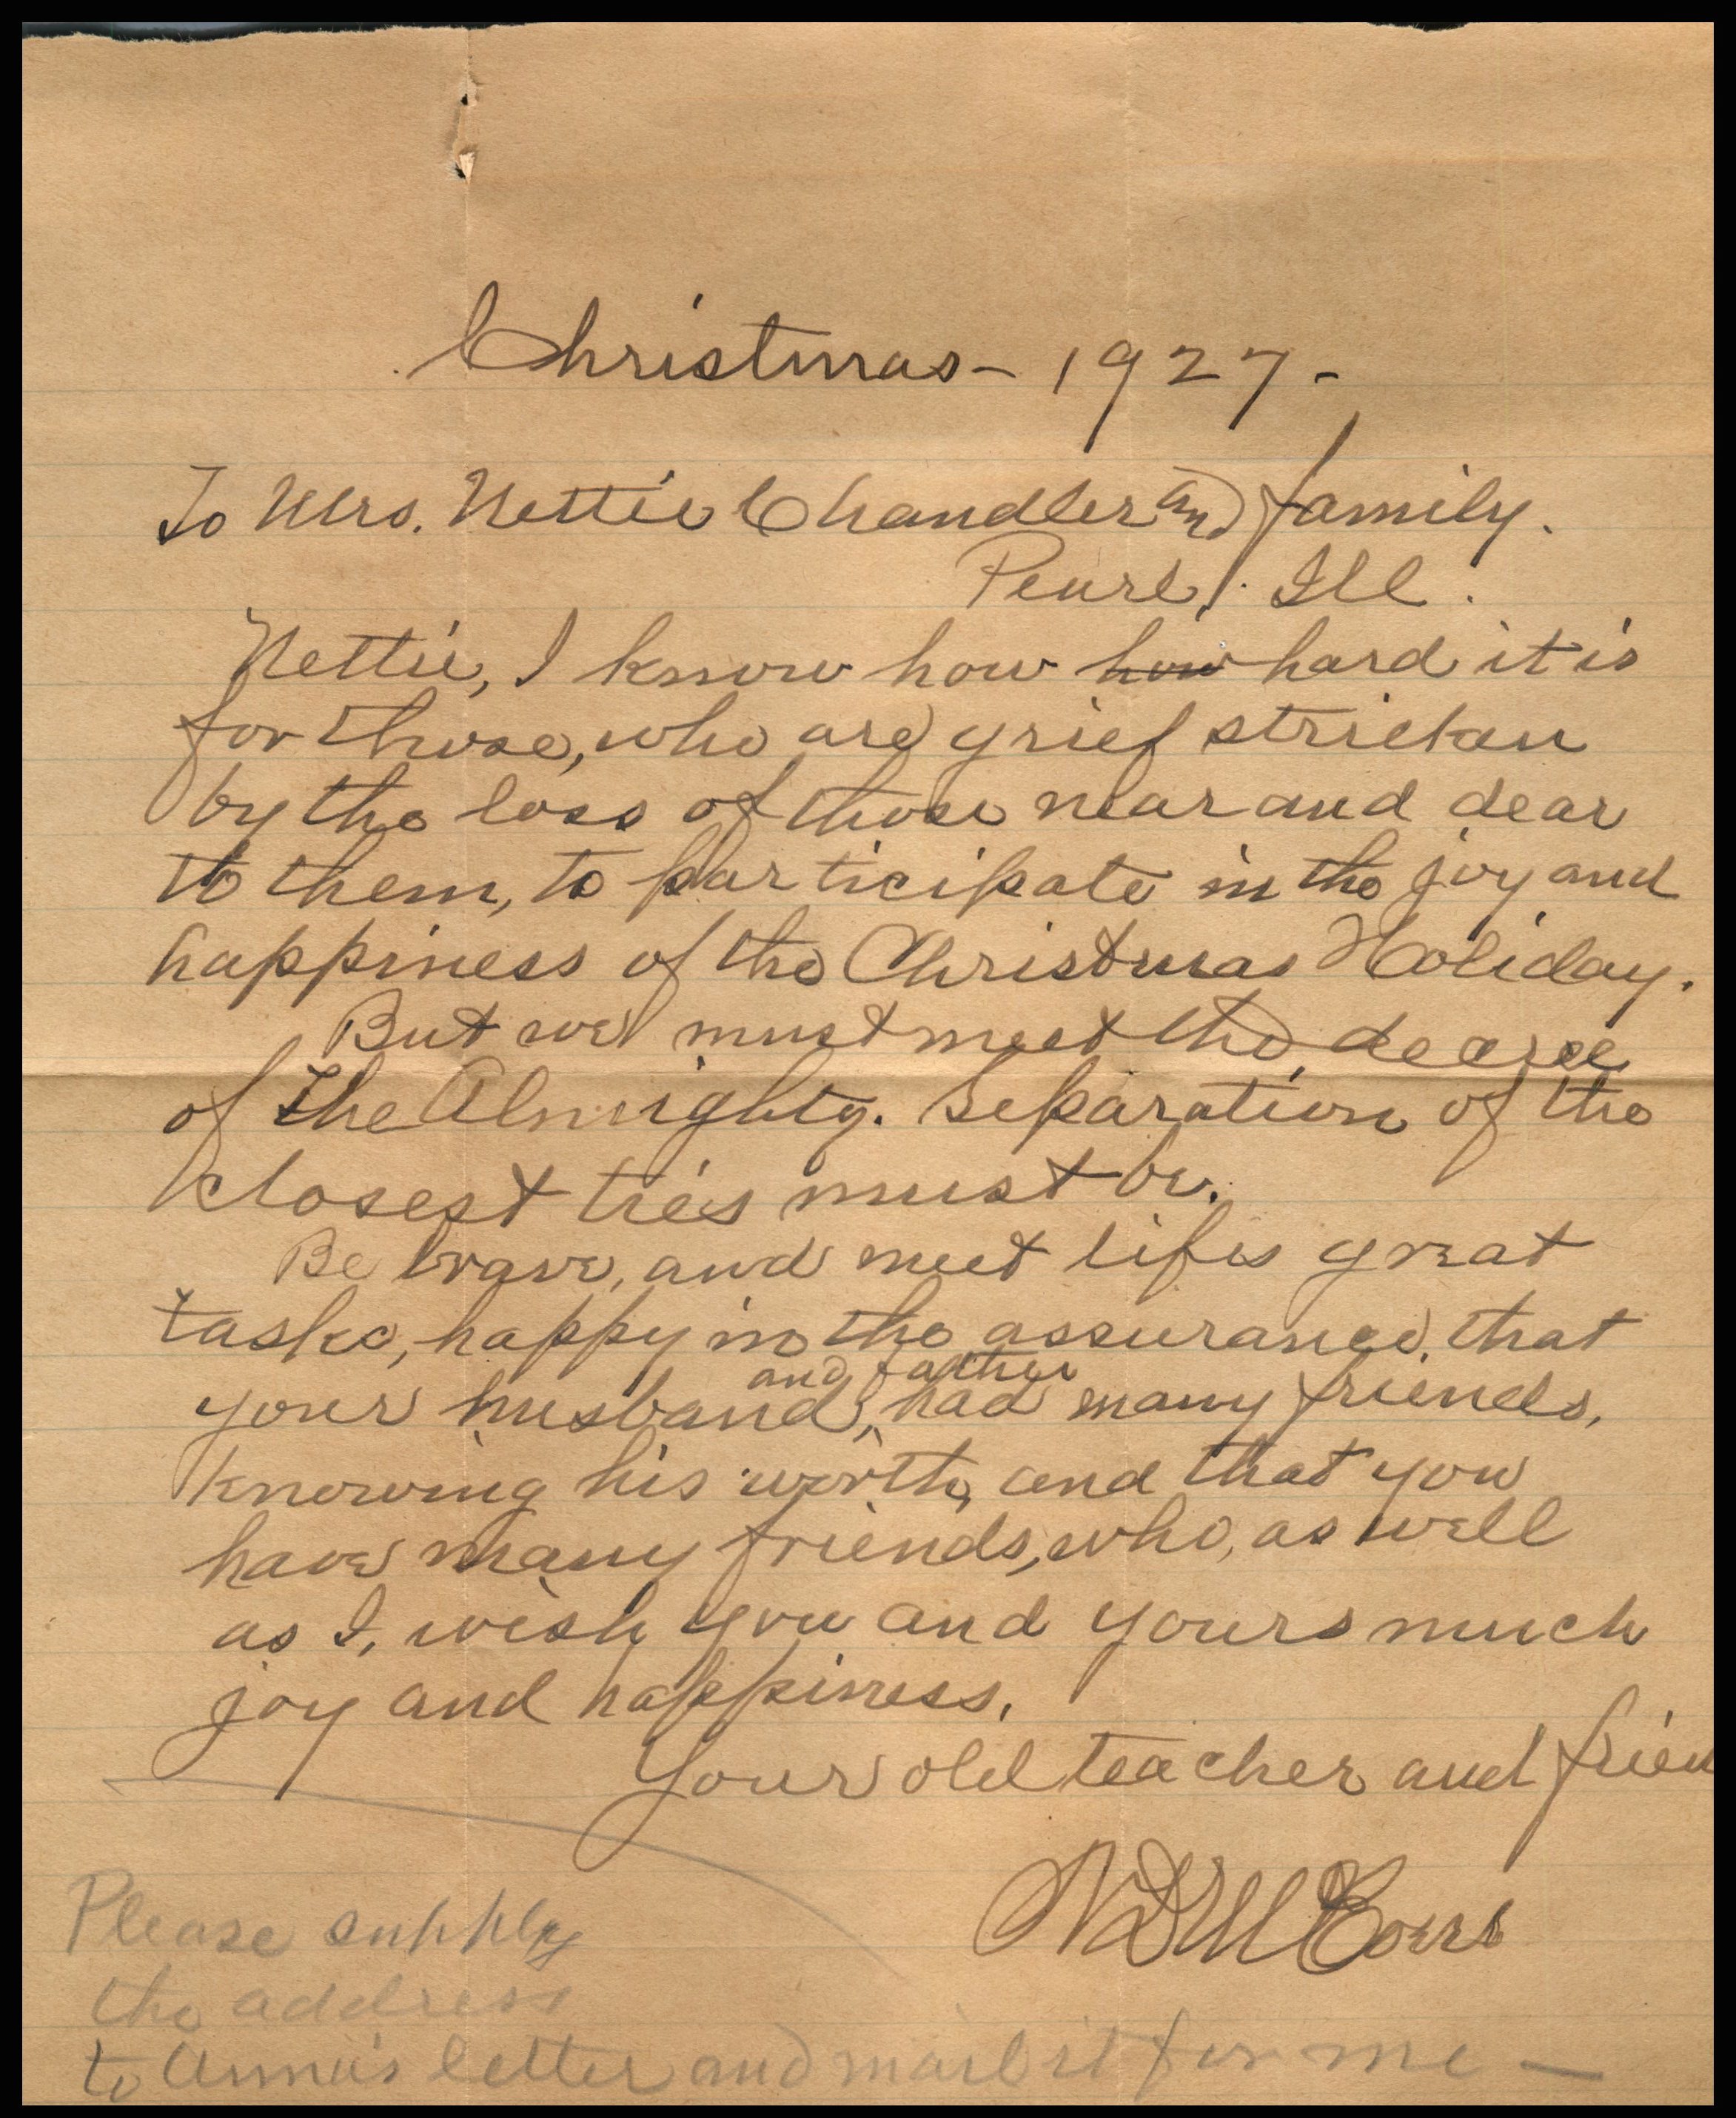 Christmas - 1927 -
To Mrs. Nettie Chandler and family.
Pearl, Ill.
Nettie, I know how how hard it is
for those, who are grief strickan
by the loss of those near and dear
to them, to participate in the joy and
happiness of the Christmas Holiday.
But we must meet the decree
of the Almighty. Separation of the
closest ties must be.
Be brave, and meet lifes great
tasks, happy in the assurance, that
and father
your husband, had many friends,
knowing his worth, and that you
have many friends, who, as well
as I, wish you and yours much
joy and happiness.
Your old teacher and frien
Please supply
the address
to Anna's letter and mail it for me —